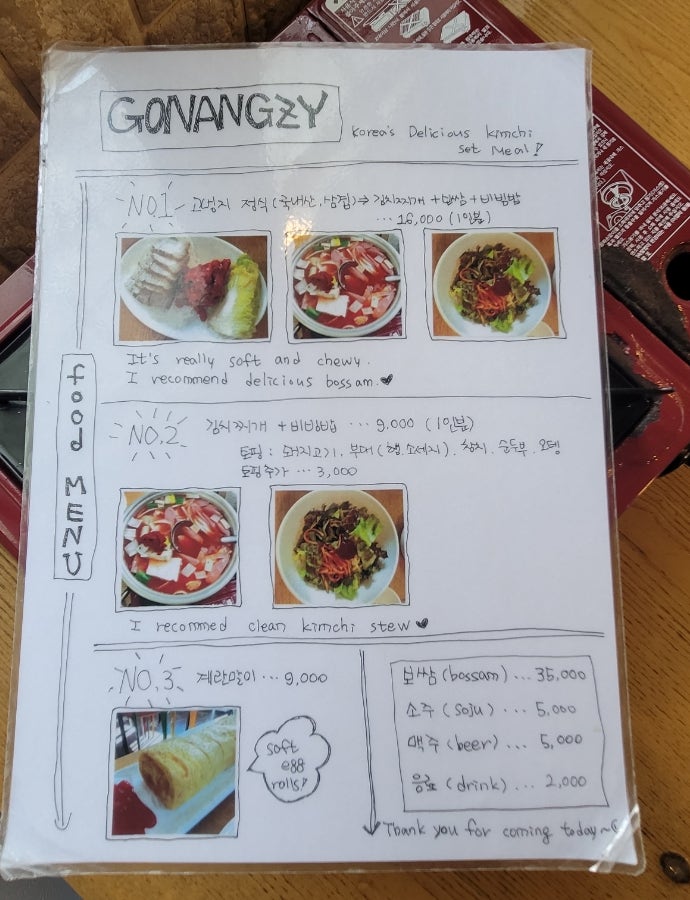 GONANGZY
Korea's Delicious kimchi
set Meal!
NO.1 고넝지 정식(국내산, 삼겹)⇒ 김치찌개 + 보쌈 + 비빔밥
... 16,000 (1인분)
It's really soft and chewy.
I recommend delicious bossam.♥
food MENU
NO.2 김치찌개 + 비빔밥 ... 9,000 (1인분)
토핑 : 돼지고기, 부대(햄,소세지), 참치, 순두부, 오뎅
토핑추가 ... 3,000
I recommed clean kimchi stew♥
NO.3 계란말이 ... 9,000
soft
egg
rolls!
보쌈(bossam) ... 35,000
소주 (soju) ... 5,000
맥주 (beer) ... 5,000
음료 (drink) ... 2,000
Thank you for coming today~